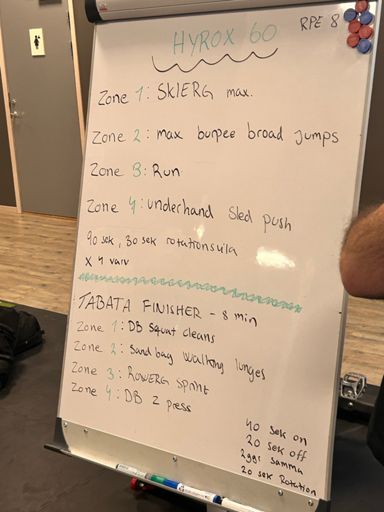 HYROX 60
RPE 8
Zone 1: SKIERG max.
Zone 2: max burpee broad jumps
Zone 3: Run
Zone 4: underhand Sled push
90 sek, 30 sek rotationsvila
x 4 varv
TABATA FINISHER - 8 min
Zone 1: DB Squat cleans
Zone 2: Sandbag walking lunges
Zone 3: ROWERG Sprint
Zone 4: DB Z press
40 sek on
20 sek off
2ggr samma
20 sek Rotation